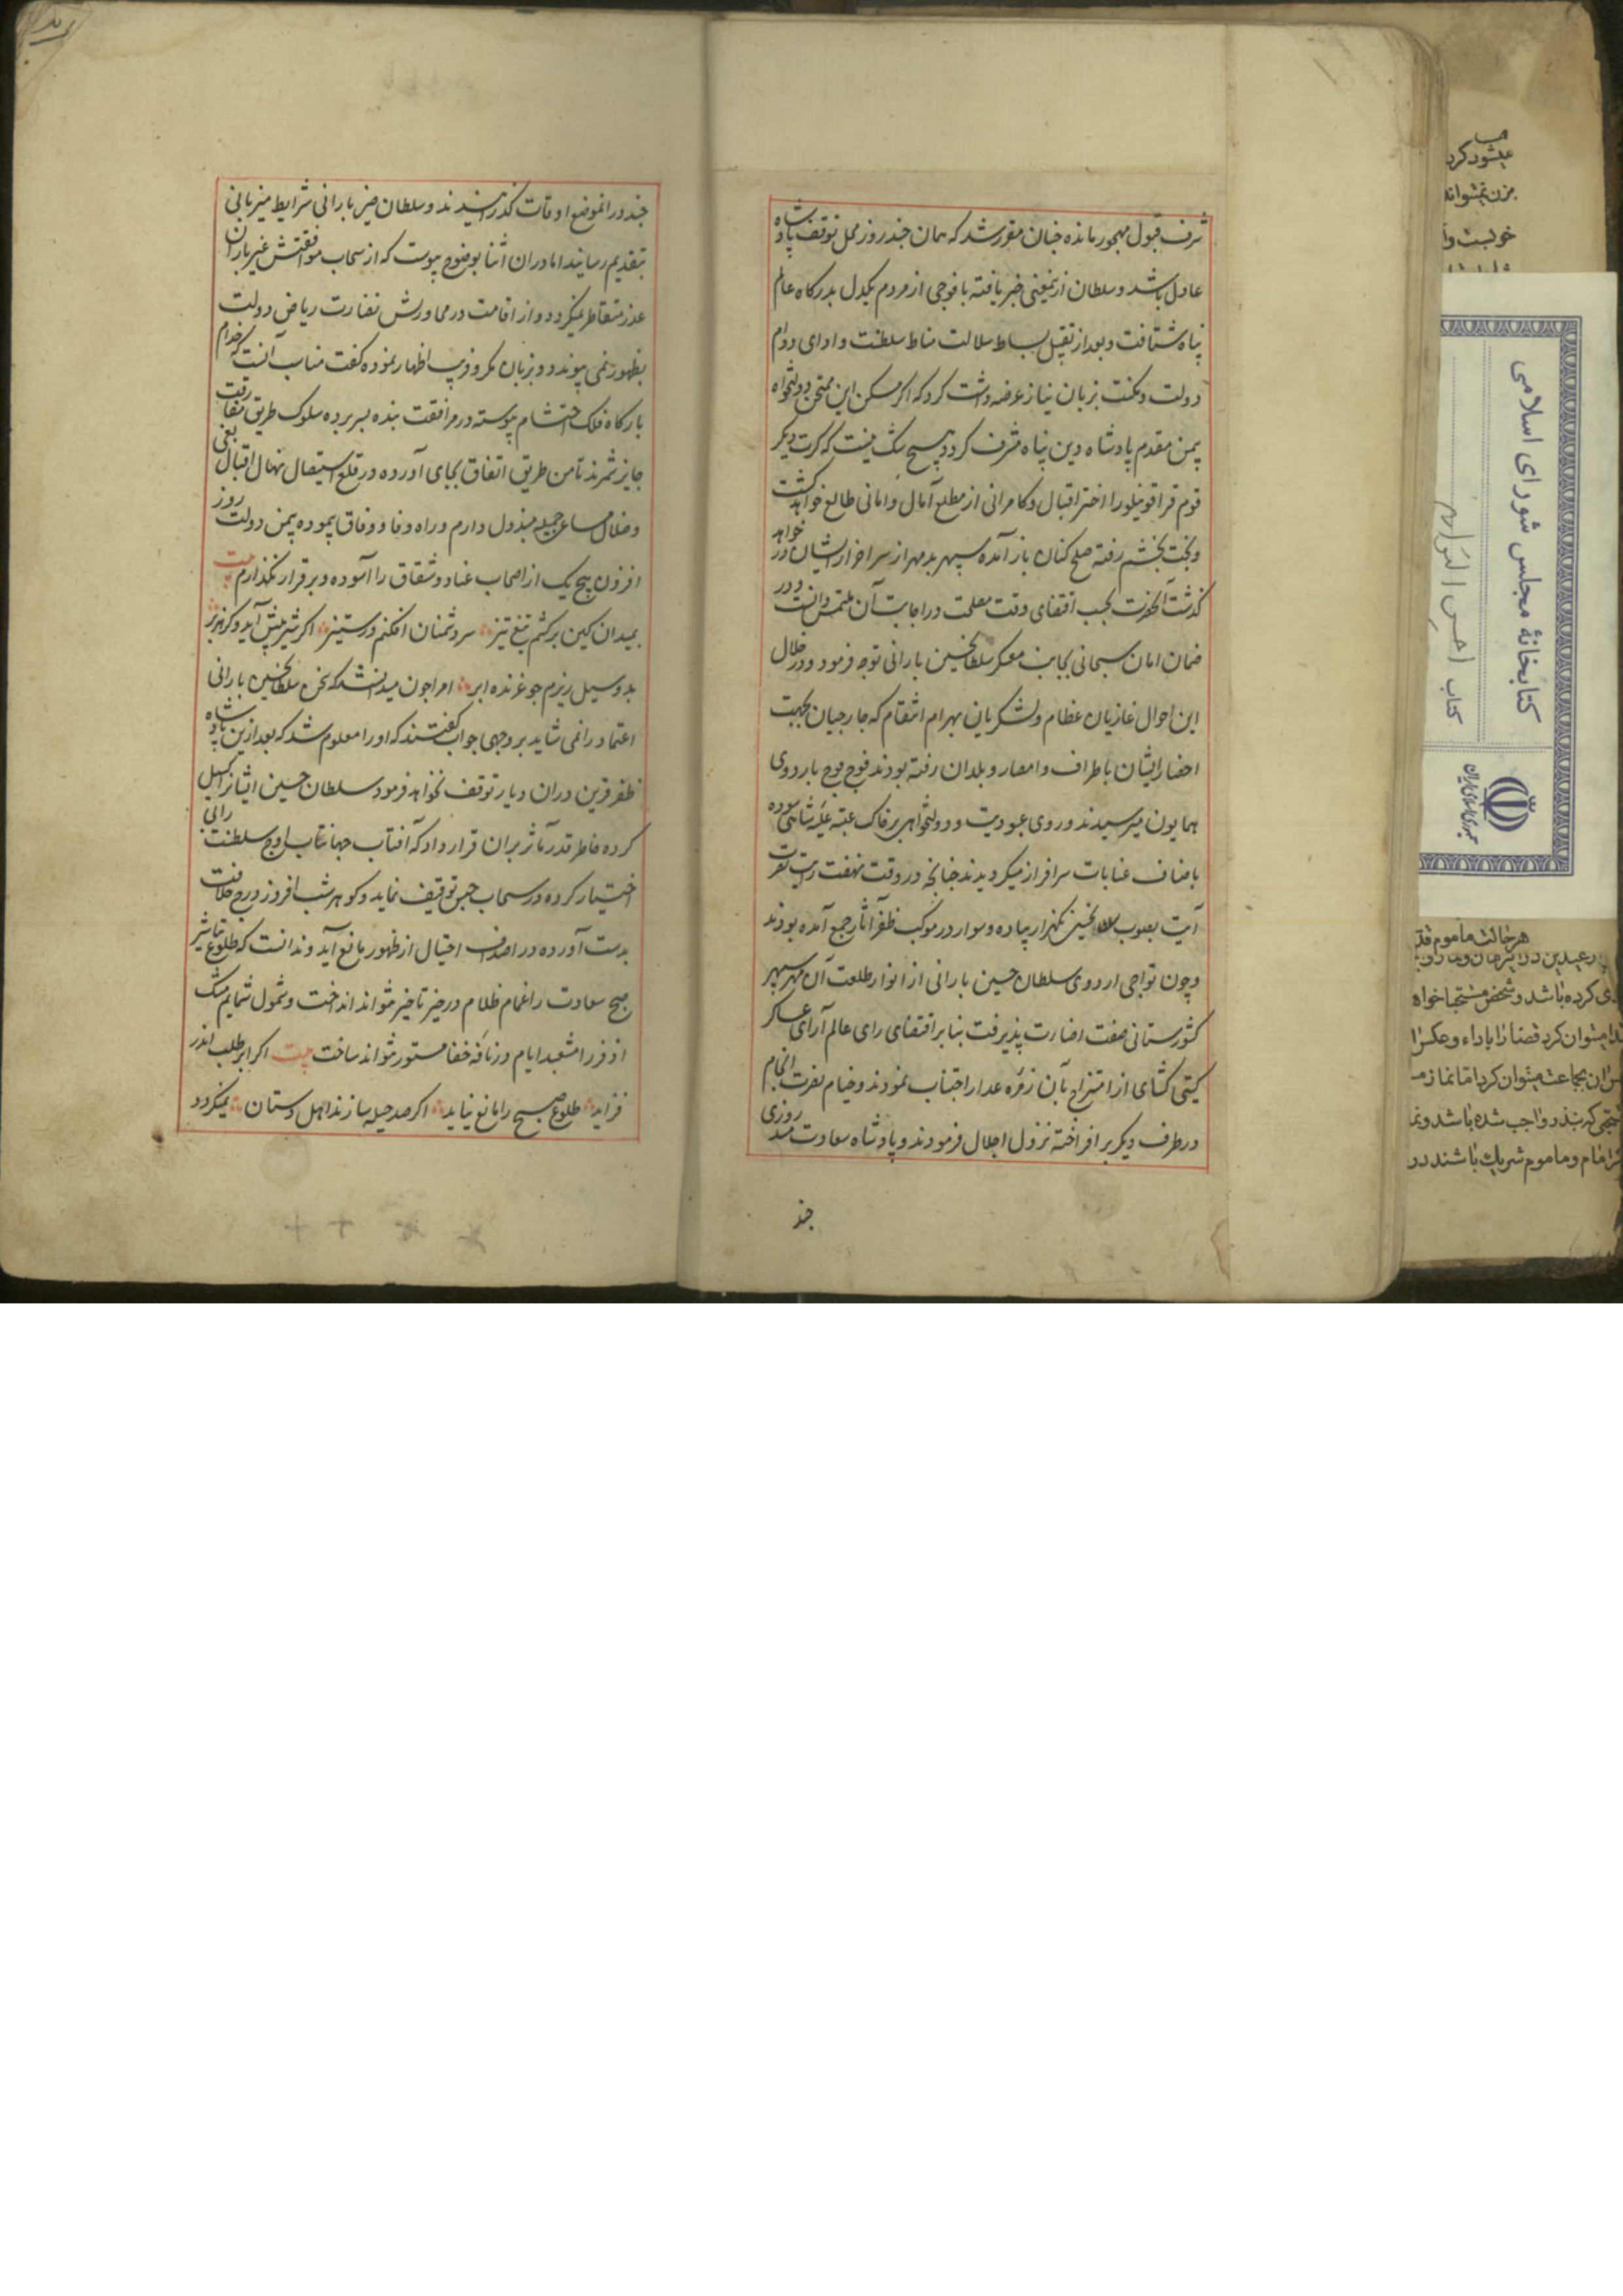 شرف قبول مهجور مانده جنان مقرر شد که همان جند روز محل توقف پادشاه
عادل باشد و سلطان ازینمعنی خبر یافته با فوجی از مردم یکدل بدرکاه عالم
پناه شتافت و بعد از تقبیل بساط سلالت مناط سلطنت و ادای دوام
دولت و مکنت بزبان نیاز عرضه داشت کرد که اکر مسکن این ممتحن دولتخواه
بیمن مقدم پادشاه دین پناه مشرف کردد هیچ شک نیست که کرت دیکر
قوم قراقوینلو را اختر اقبال و کامرانی از مطلع آمال و امانی طالع خواهد کشت
و بخت بخشم رفته صلح کنان باز آمده سپهر بدمهر از سر اضرار ایشان در خواهد
کذشت آنحضرت بحسب اقتضای وقت مصلحت در اجابت آن ملتمس دانست و در
ضمان امان سبحانی بجانب معسکر سلطان حسین بارانی توجه فرمود و در خلال
این احوال غازیان عظام و لشکریان بهرام انتقام که جارجیان بجهت
احضار ایشان باطراف و امصار و بلدان رفته بودند فوج فوج باردوی
همایون میرسیدند و روی عبودیت و دولتخواهی بر خاک عتبه علیه شاهی سوده
باصناف عنایات سرافراز میکردیدند جنانجه در وقت نهضت رایت نصرت
آیت بصوب سلطان حسین یکهزار پیاده و سوار در موکب ظفر آثار جمع آمده بودند
و چون نواحی اردوی سلطان حسین بارانی از انوار طلعت آن مهر سپهر
کشورستانی صفت اضاءت پذیرفت بنابر اقتضای رای عالم آرای عساکر
کیتی کشای از امتزاج بآن زمره غدار اجتناب نمودند و خیام نصرت انجام
در طرف دیکر بر افراخته نزول اجلال فرمودند و پادشاه سعادتمند روزی
جند
جند در انموضع اوقات کذرانیدند و سلطان حسین بارانی شرایط میزبانی
بتقدیم رسانید اما دران اثنا بوضوح پیوست که از سحاب موافقتش غیر باران
غدر متقاطر نمیکردد و از اقامت در مجاورتش نضارت ریاض دولت
بظهور نمی پیوندد و بزبان مکر و فریب اظهار نموده کفت مناسب آنست که خدام
بارکاه فلک احتشام پیوسته در مرافقت بنده بسر برده سلوک طریق مفارقت
جایز نشمرند تا من طریق اتفاق بجای آورده در قلع و استیصال نهال اقبال بغی
و ضلال مساعی جمیله مبذول دارم و راه وفا و وفاق پیموده بیمن دولت روز
افزون هیچ یک از اصحاب عناد و شقاق را آسوده و برقرار نکذارم بیت
بمیدان کین برکشم تیغ تیز سر دشمنان افکنم در ستیز اکر شیر پیش آید و کر هزبر
بدو سیل ریزم جو غرنده ابر امرا جون میدانستند که سخن سلطان حسین بارانی
اعتماد را نمی شاید بر وجهی جواب کفتند که او را معلوم شد که بعد ازین پادشاه
ظفر قرین دران دیار توقف نخواهد فرمود سلطان حسین ایشانرا کسیل
کرده خاطر قدر مآثر بران قرار داد که آفتاب جهانتاب اوج سلطنت را بی
اختیار کرده در سحاب حبس توقیف نماید و کوهر شب افروز درج خلافت
بدست آورده در اصداف احتیال از ظهور مانع آید و ندانست که طلوع تباشیر
صبح سعادت را غمام ظلام در حیز تاخیر نتواند انداخت و شمول شمایم مشک
اذفر را مشعبد ایام در نافه خفا مستور نتواند ساخت بیت اکر ابر ظلمت اندر
فزاید طلوع صبح را مانع نیاید اکر صد حیله سازند اهل دستان نمیکردد
کتابخانهٔ مجلس شورای اسلامی
کتاب احسن التواریخ
جمهوری اسلامی ایران
میشود کرد
هرحالت ماموم قد